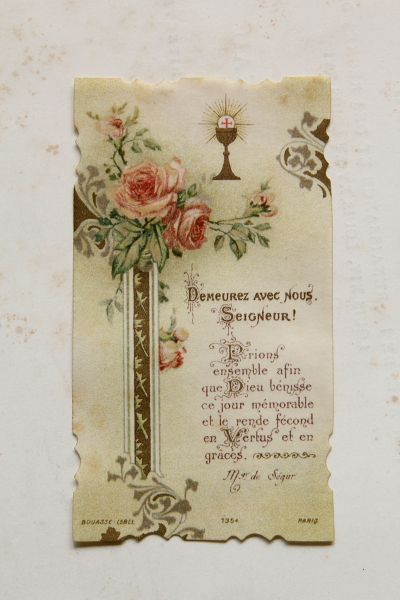 Demeurez avec nous,
Seigneur!
Prions
ensemble afin
que Dieu bénisse
ce jour mémorable
et le rende fécond
en Vertus et en
grâces.
Mgr de Ségur
BOUASSE-LEBEL 1354 PARIS